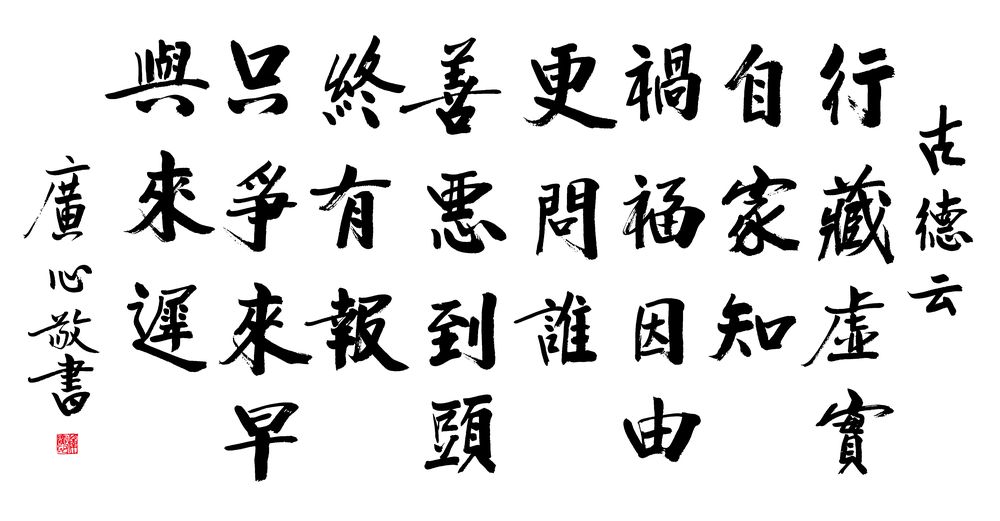 古德云
行藏虛實
自家知
禍福因由
更問誰
善惡到頭
終有報
只爭來早
與來遲
廣心敬書